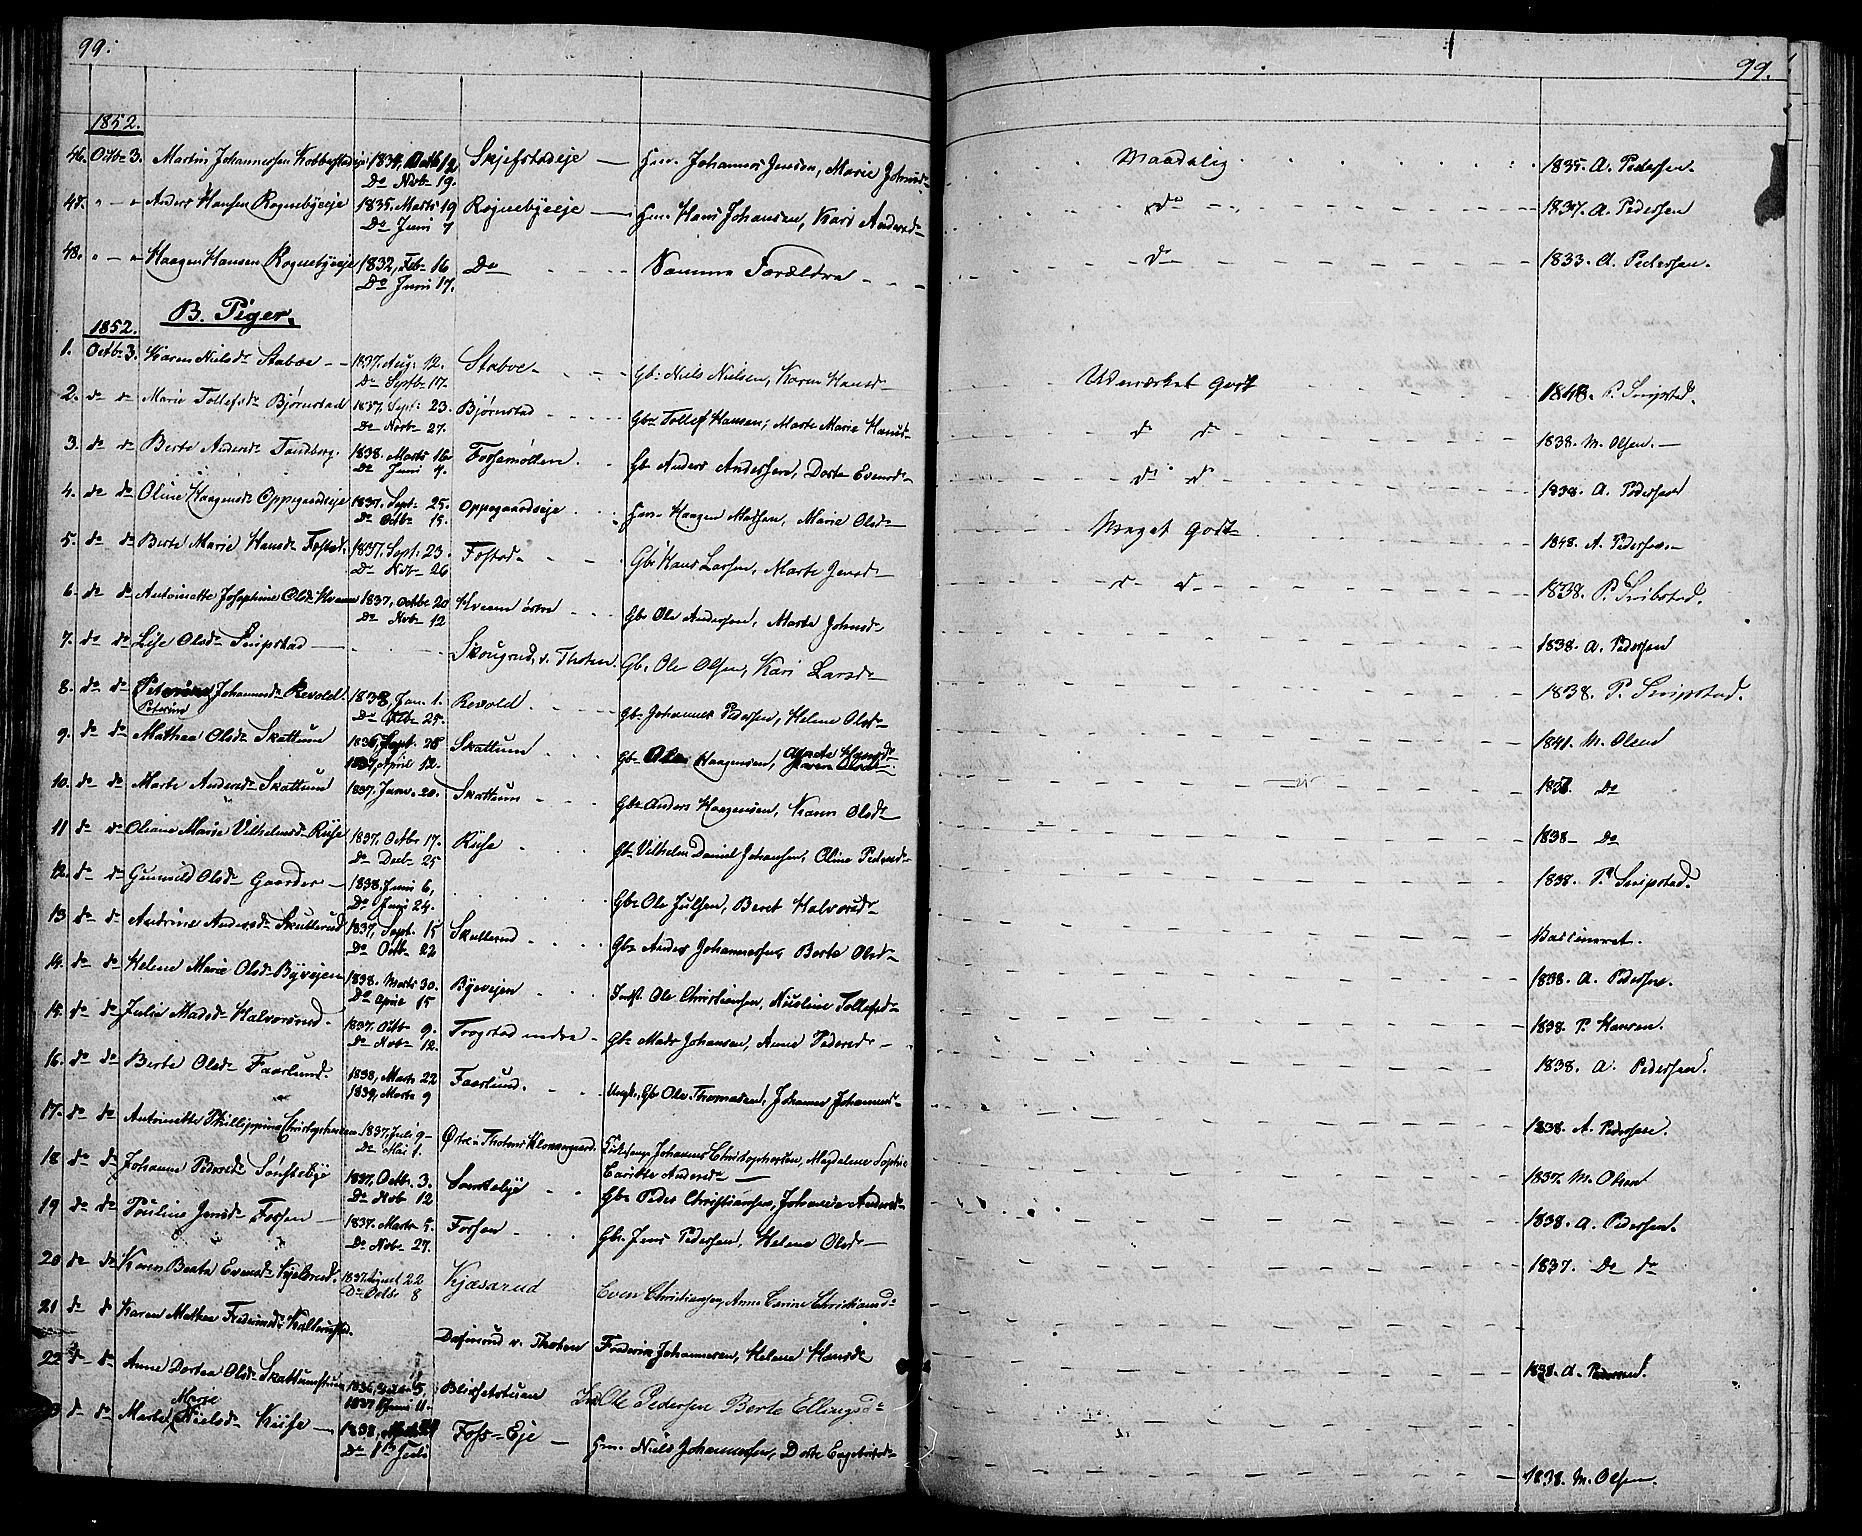 99.
99.
1852.
46. Octb 3. Martin Johannessen 1834, Octb 12 Skjefstadeje Hm. Johannes Jensen, Marie Maadelig 1835. A. Pedersen.
Do Novb 19.
47. " — " Anders Hansen Rognebyeeje 1835. Marts 19 Rognebyeeje Hm. Hans Johansen, Kari Andersd. do 1837. A. Pedersen
Do Juni 7
48. " — " Haagen Hansen Rognebyeeje 1832, Feb 16 Do Samme Forældre do 1833. A. Pedersen.
Do Juni 17.
B. Piger.
1852.
1. Octb 3. Karen Nielsd. Staboe 1837. Aug. 12. Staboe Gb. Niels Nielsen, Karen Hansd. Udmærket Godt P. Snipstad.
Do Septb 17.
2. do do Marie Tollefsd. Bjørnstad 1837. Sept. 23. Bjørnstad Gb. Tollef Hansen, Marte Marie Hansd. d d 1838. M. Olsen.
Do Novb 27.
3. do do Berte Andersd. 1838. Marts 16 Fossemøllen Gb. Anders Andersen, Dorte Evensd. d d 1838. A. Pedersen
Do Juni 9.
4. do do Oline Haagensd. Oppegaardseje 1837. Sept. 25. Oppegaardseje Hm. Haagen Madsen, Marie Olsd. Meget Godt 1848. A. Pedersen
Do Octb 15.
5. do do Berte Marie Hansd. 1837. Sept. 23. Gb. Hans Larsen, Marte Jensd. d d 1838. P. Snibstad.
Do Novb 26
6. do do Antoinette Josephine Olsd. Kveem 1837, Octbr 20 Kveem østre Gb. Ole Andersen, Marte Johnsd. 1838. A. Pedersen
Do Novb 12
7. do do Lise Olsd. Snipstad Skougrud, v. Thoten. Gb. Ole Olsen, Kari Larsd. 1838. P. Snipstad.
8. do do Johannesd. Revold 1838, Jan. 1. Revold Gb. Johannes Pedersen, Helene Olsd. 1841. M. Olsen
Peterine Do Feb 25.
9. do do Mathea Olsd. Skattum 1836, Sept. 28 Skattum Gb. Ole Haagensen, Agnete 18 Do
1837, April 12.
10. do do Marte Andersd. Skattum 1837. Janr. 20. Skattum Gb. Anders Haagensen, Karen Olsd. 1838 Do
11 do do Oliane Marie Vilhelmsd. Riise 1837. Octbr 17. Riise Gb. Vilhelm Daniel Johansen, Oline Pedersd. 1838. P. Snipstad.
Do Decb 25
12. do do Gunnild Olsd. Gaarder 1838. Juni 6, Gb. Ole Julsen, Beret Halvorsd.
Do Juni 24.
13 do do Andrine Andersd. Skullerud 1837, Sept. 15 Skullerud Gb. Anders Johannessen, Berte Olsd. Vaccineret.
Do Octb 22
14. do do Helene Marie Olsd. Byvejen 1838. Marts 30. Byevejen Indst. Ole Christiansen, Nicoline Tollefsd. 1838. A. Pedersen.
Do April 15
15. do do Julie Madsd. Halvorsrud. 1837. Octb 9. Trogstad nedre Gb. Mads Johansen, Anne Pedersd. 1838. P. Hansen.
Do Novb 12.
16. do do Berte Olsd. Faarlund. 1838, Marts 22 Faarlund. Ungk., Gb. Ole Thomasen, Johanne Johannesd. 1838. A. Pedersen.
1839, Marts 9
17. do do Antoinette Phillippine Christophersen 1837, Juli 9 Østre Thoten Johannes Christophersen, Magdalene Sophie 1838. A. Pedersen.
Do Mai 1. Andersd.
18 do do Johanne Pedersd. Sønsteby 1837, Octb. 3. Sønsteby Gb. Peder Christiansen, Johanne Andersd. 1837. M. Olsen
Do Novb 12
19 do do Pauline Jensd. Fossen 1837. Marts 5. Fossen Gb. Jens Pedersen, Helene Olsd. 1838. A. Pedersen.
Do Nov 27.
20 do do Karen Beate Evensd. 1837. August 22 Kjæsarud Even Christiansen, Anne Carine Christiansd. 1837. Do do
Do Octbr 8
21 do d Karen Mathea Frederiksd. v. Thoten Frederik Johannesen, Helene Hansd. 1838. A. Pedersen.
22 d do Anne Dortea Olsd. Skattumstuen 1836, 5, Ole Pedersen Berte Ellingsd.
1837 Juni 11.
d do Marte Marie Nielsd. Riise 1838, Foss-Eje Hm. Niels Johannessen, Dorte Engebretsd. 1838. M. Olsen.
Do Juli